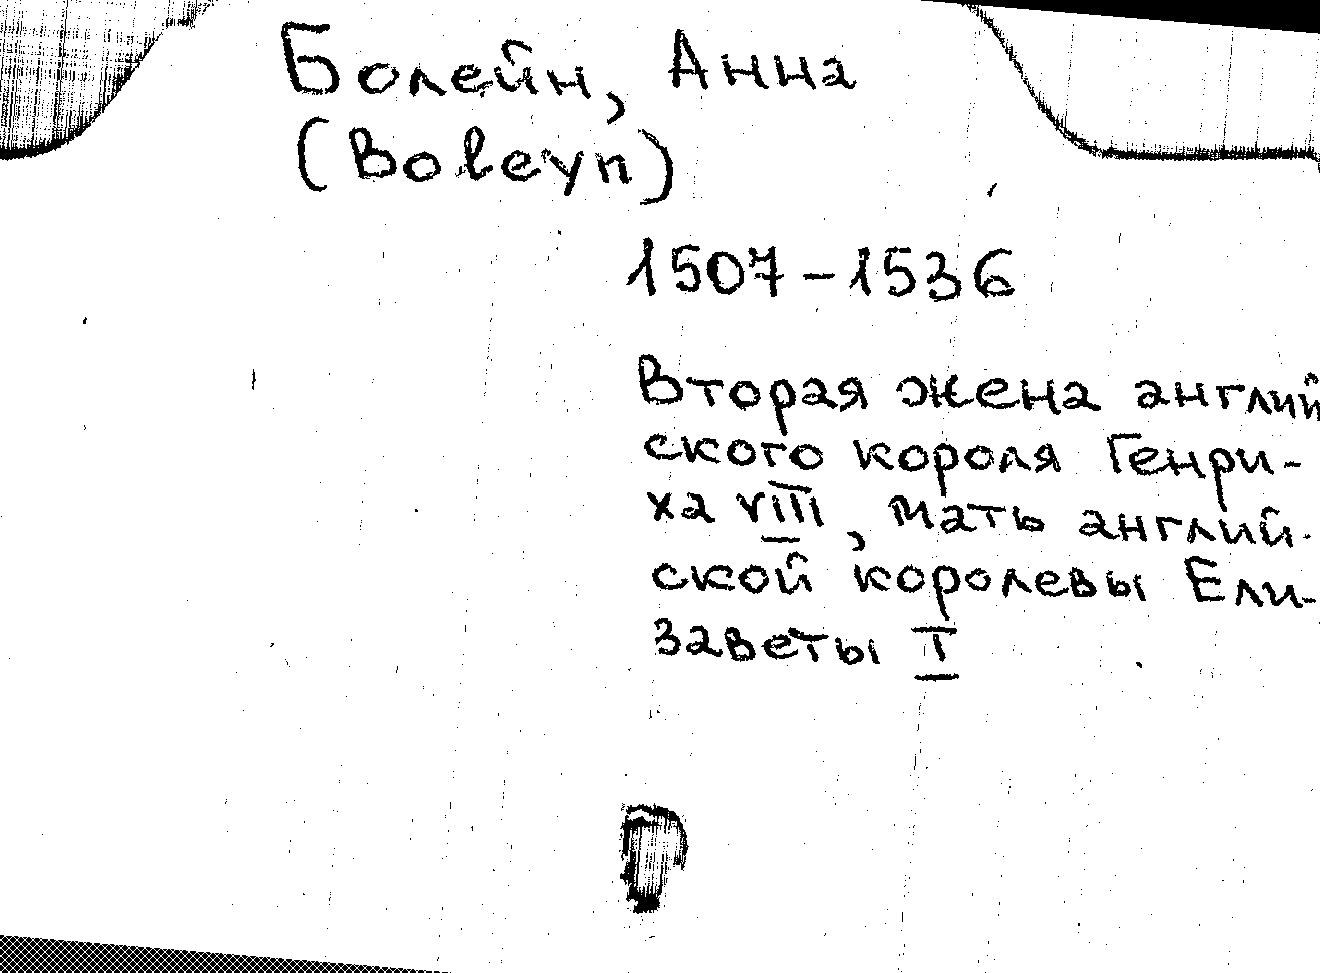 Болейн, Анна
(Boleyn)
1507-1536
Вторая жена англий
ского короля Генри-
ха VIII, мать англий-
ской королевы Ели-
заветы I